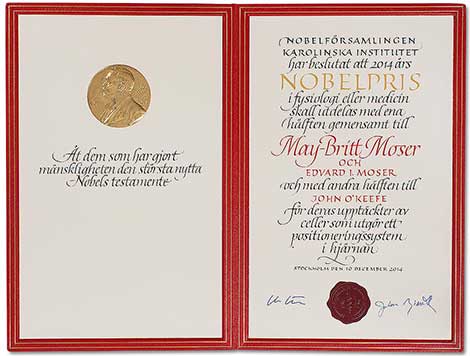 Åt dem som har gjort
mänskligheten den största nytta
Nobels testamente
NOBELFÖRSAMLINGEN
KAROLINSKA INSTITUTET
har beslutat att 2014 års
NOBELPRIS
i fysiologi eller medicin
skall utdelas med ena
hälften gemensamt till
May-Britt Moser
OCH
EDVARD I. MOSER
och med andra hälften till
JOHN O'KEEFE
för deras upptäckter av
celler som utgör ett
positioneringssystem
i hjärnan
STOCKHOLM DEN 10 DECEMBER 2014